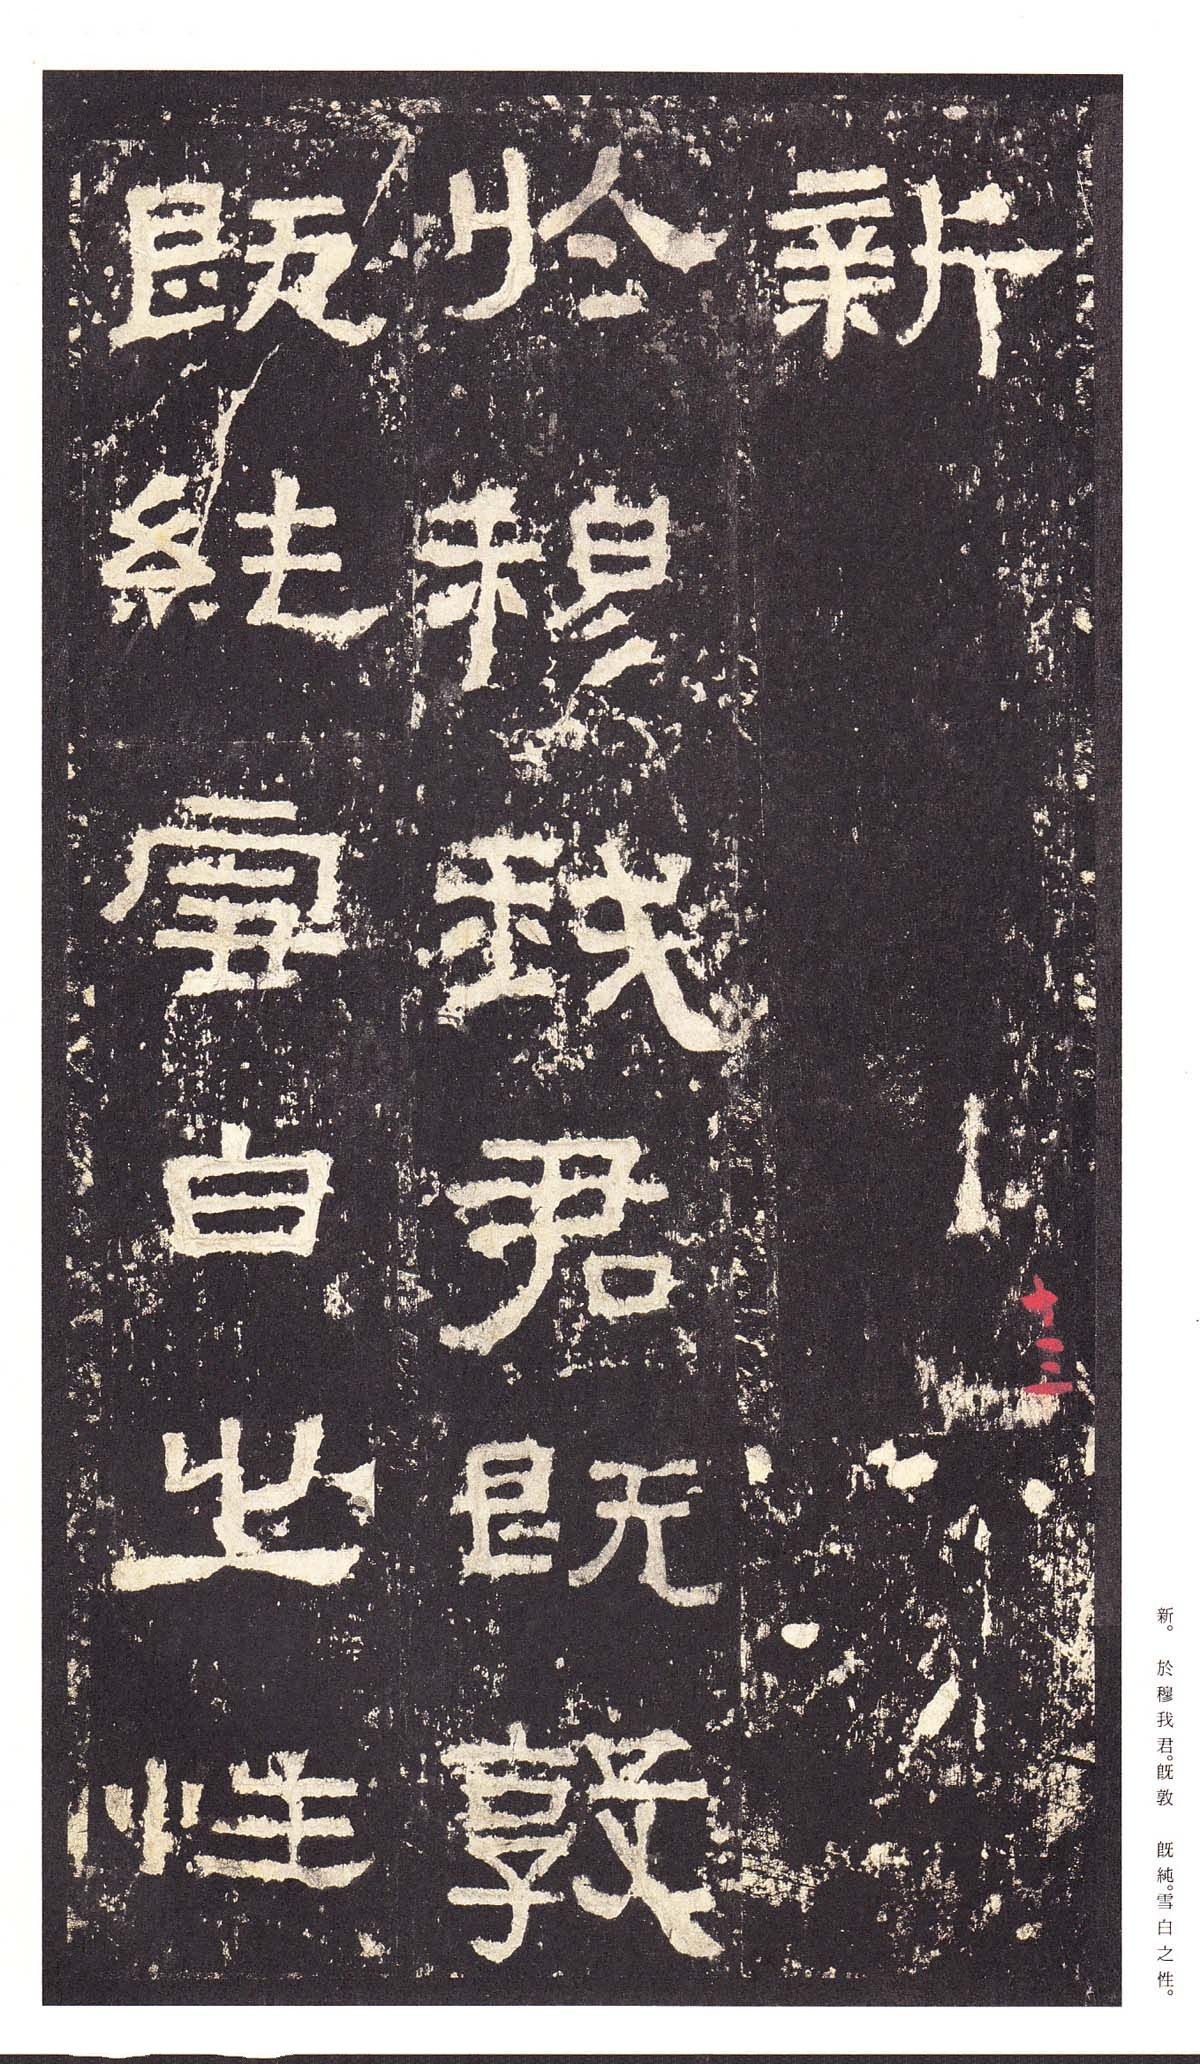 新
於穆我君既敦
既純雪白之性
十二
新。 於穆我君。既敦 既純。雪白之性。